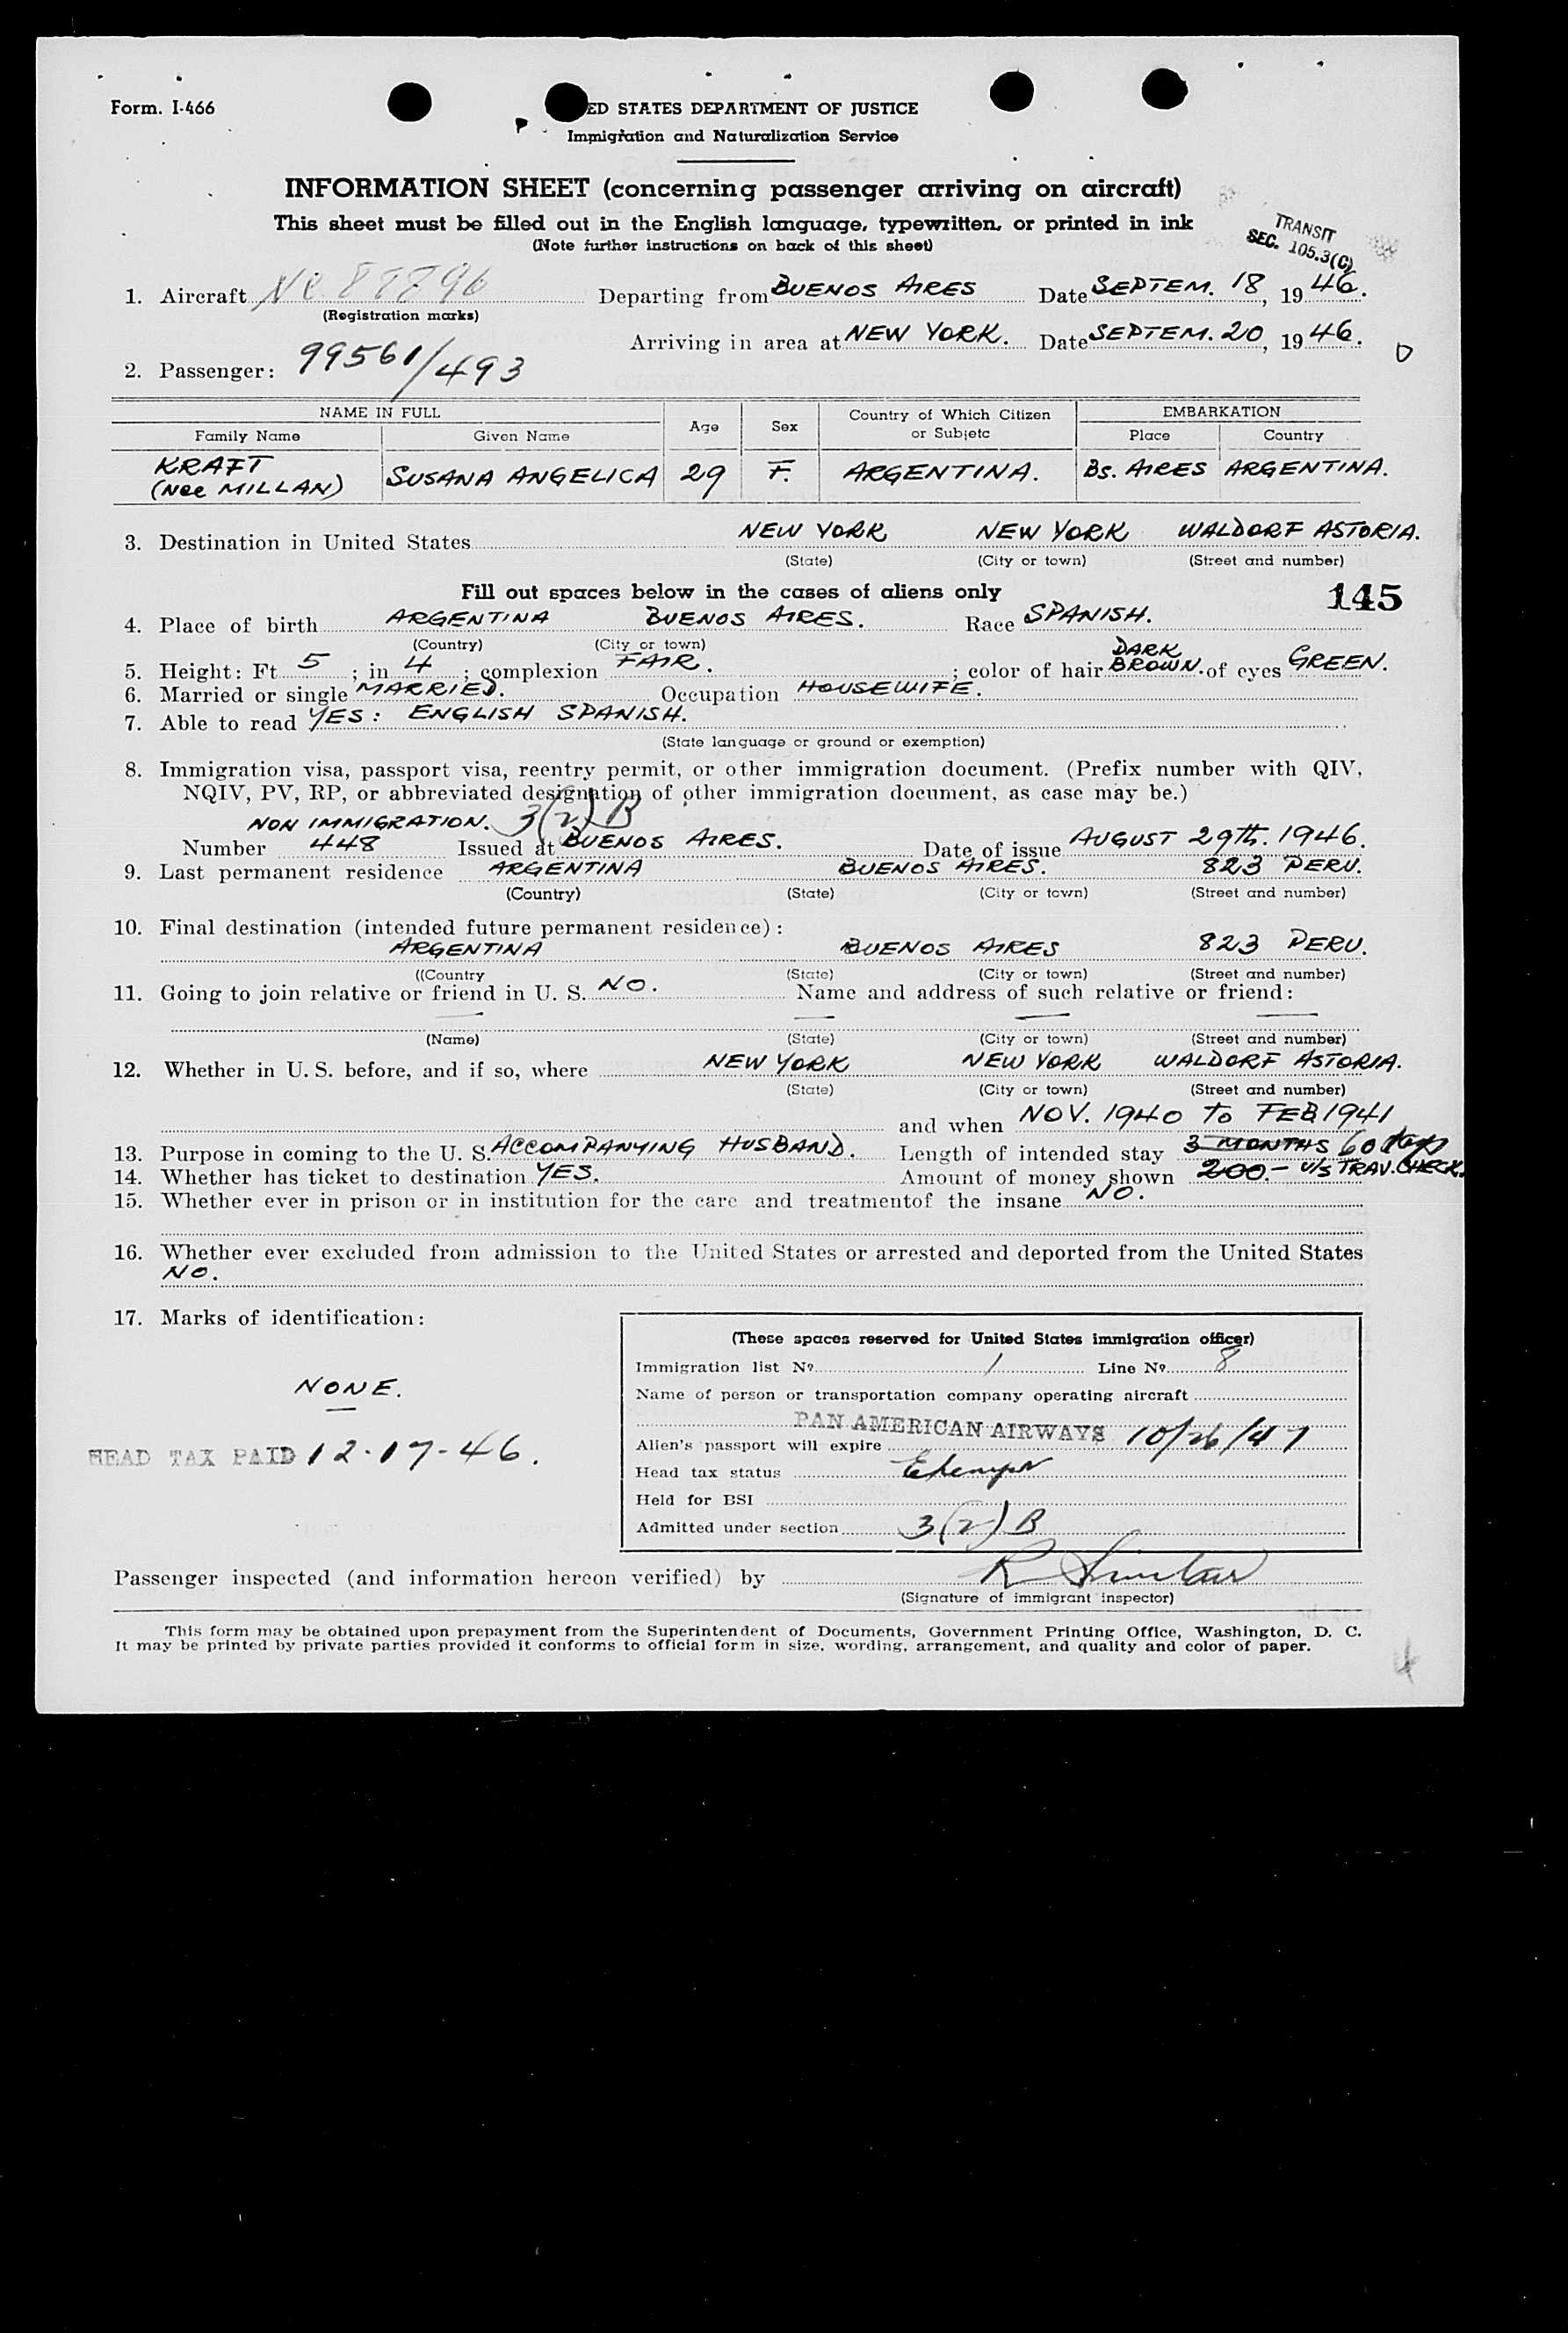 Form. I-466
ED STATES DEPARTMENT OF JUSTICE
Immigration and Naturalization Service
INFORMATION SHEET (concerning passenger arriving on aircraft)
This sheet must be filled out in the English language, typewritten, or printed in ink
(Note further instructions on back of this sheet)
TRANSIT
SEC. 105.3(C)
1. Aircraft NC 88896 Departing from BUENOS AIRES Date SEPTEM. 18, 1946.
(Registration marks)
Arriving in area at NEW YORK. Date SEPTEM. 20, 1946.
2. Passenger: 99561/493
NAME IN FULL Age Sex Country of Which Citizen or Subjetc EMBARKATION
Family Name Given Name Place Country
KRAFT SUSANA ANGELICA 29 F. ARGENTINA. Bs. AIRES ARGENTINA.
(Nee MILLAN)
3. Destination in United States NEW YORK NEW YORK WALDORF ASTORIA.
(State) (City or town) (Street and number)
Fill out spaces below in the cases of aliens only
145
4. Place of birth ARGENTINA BUENOS AIRES. Race SPANISH.
(Country) (City or town)
5. Height: Ft 5; in 4; complexion FAIR.; color of hair DARK BROWN. of eyes GREEN.
6. Married or single MARRIED. Occupation HOUSEWIFE.
7. Able to read YES: ENGLISH SPANISH.
(State language or ground or exemption)
8. Immigration visa, passport visa, reentry permit, or other immigration document. (Prefix number with QIV,
NQIV, PV, RP, or abbreviated designation of other immigration document, as case may be.)
NON IMMIGRATION. 3(2)B
Number 448 Issued at BUENOS AIRES. Date of issue AUGUST 29th. 1946.
9. Last permanent residence ARGENTINA BUENOS AIRES. 823 PERU.
(Country) (State) (City or town) (Street and number)
10. Final destination (intended future permanent residence):
ARGENTINA BUENOS AIRES 823 PERU.
((Country (State) (City or town) (Street and number)
11. Going to join relative or friend in U. S. NO. Name and address of such relative or friend:
(Name) (State) (City or town) (Street and number)
12. Whether in U. S. before, and if so, where NEW YORK NEW YORK WALDORF ASTORIA.
(State) (City or town) (Street and number)
and when NOV. 1940 to FEB 1941
13. Purpose in coming to the U. S. ACCOMPANYING HUSBAND. Length of intended stay 3 MONTHS 60 days
14. Whether has ticket to destination YES. Amount of money shown 200.- U/S TRAV. CHECK.
15. Whether ever in prison or in institution for the care and treatmentof the insane NO.
16. Whether ever excluded from admission to the United States or arrested and deported from the United States
NO.
17. Marks of identification:
NONE.
HEAD TAX PAID 12-17-46.
(These spaces reserved for United States immigration officer)
Immigration list Nº 1 Line Nº 8
Name of person or transportation company operating aircraft
PAN AMERICAN AIRWAYS
Alien's passport will expire 10/26/47
Head tax status Exempt
Held for BSI
Admitted under section 3(2)B
Passenger inspected (and information hereon verified) by
(Signature of immigrant inspector)
This form may be obtained upon prepayment from the Superintendent of Documents, Government Printing Office, Washington, D. C.
It may be printed by private parties provided it conforms to official form in size, wording, arrangement, and quality and color of paper.